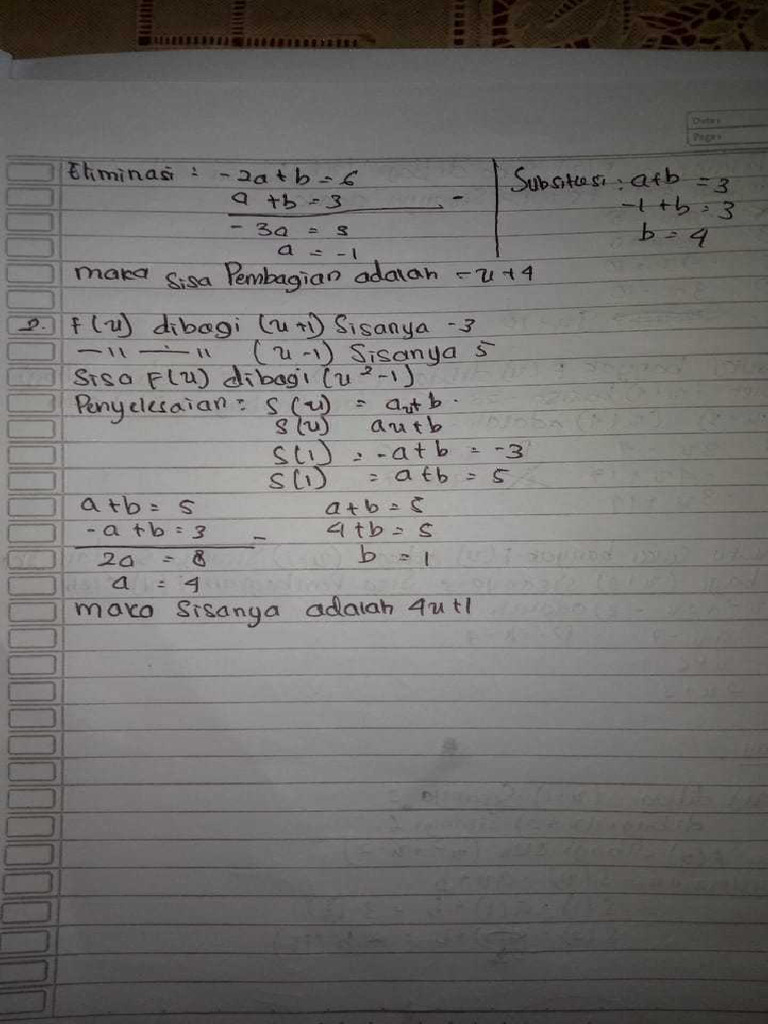 Date:
Page:
Eliminasi : -2a + b = 6
a + b = 3 -
-3a = 3
a = -1
Subsitusi : a+b = 3
-1 + b = 3
b = 4
maka sisa Pembagian adalah -x + 4
2. F(x) dibagi (x+1) Sisanya -3
—"— " (x-1) Sisanya 5
Sisa F(x) dibagi (x²-1)
Penyelesaian : S(x) = ax+b.
S(x) ax+b
S(1) = -a + b = -3
S(1) = a+b = 5
a+b = 5
-a + b = 3 -
2a = 8
a = 4
a+b = 5
4+b = 5
b = 1
maka Sisanya adalah 4x+1